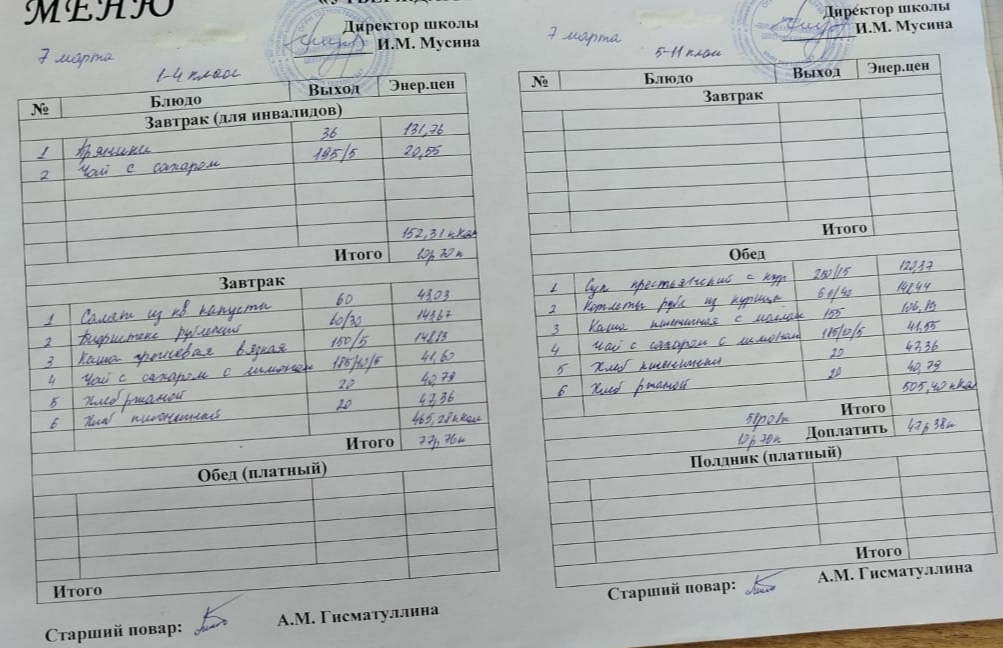 МЕНЮ
Директор школы
И.М. Мусина
7 марта
1-4 класс
№ Блюдо Выход Энер.цен
Завтрак (для инвалидов)
1 Пряники 36 131,76
2 Чай с сахаром 195/5 20,55
152,31 ккал
Итого 10р 70к
Завтрак
1 Салат из кв. капусты 60 43,03
2 Бифштекс рубленый 60/30 143,67
3 Каша гречневая вязкая 150/5 148,83
4 Чай с сахаром с лимоном 185/10/5 41,60
5 Хлеб ржаной 20 40,79
6 Хлеб пшеничный 20 47,36
465,28 ккал
Итого 77р 76к
Обед (платный)
Итого
Старший повар: А.М. Гисматуллина
Директор школы
И.М. Мусина
7 марта
5-11 класс
№ Блюдо Выход Энер.цен
Завтрак
Итого
Обед
1 Суп крестьянский с кур 250/15 120,37
2 Котлеты руб из куриц. 60/40 148,44
3 Каша пшеничная с маслом 155 106,89
4 Чай с сахаром с лимоном 185/10/5 41,55
5 Хлеб пшеничн 20 47,36
6 Хлеб ржаной 20 40,79
505,40 ккал
Итого 58р 08к
10р 70к Доплатить 47р 38к
Полдник (платный)
Итого
Старший повар: А.М. Гисматуллина